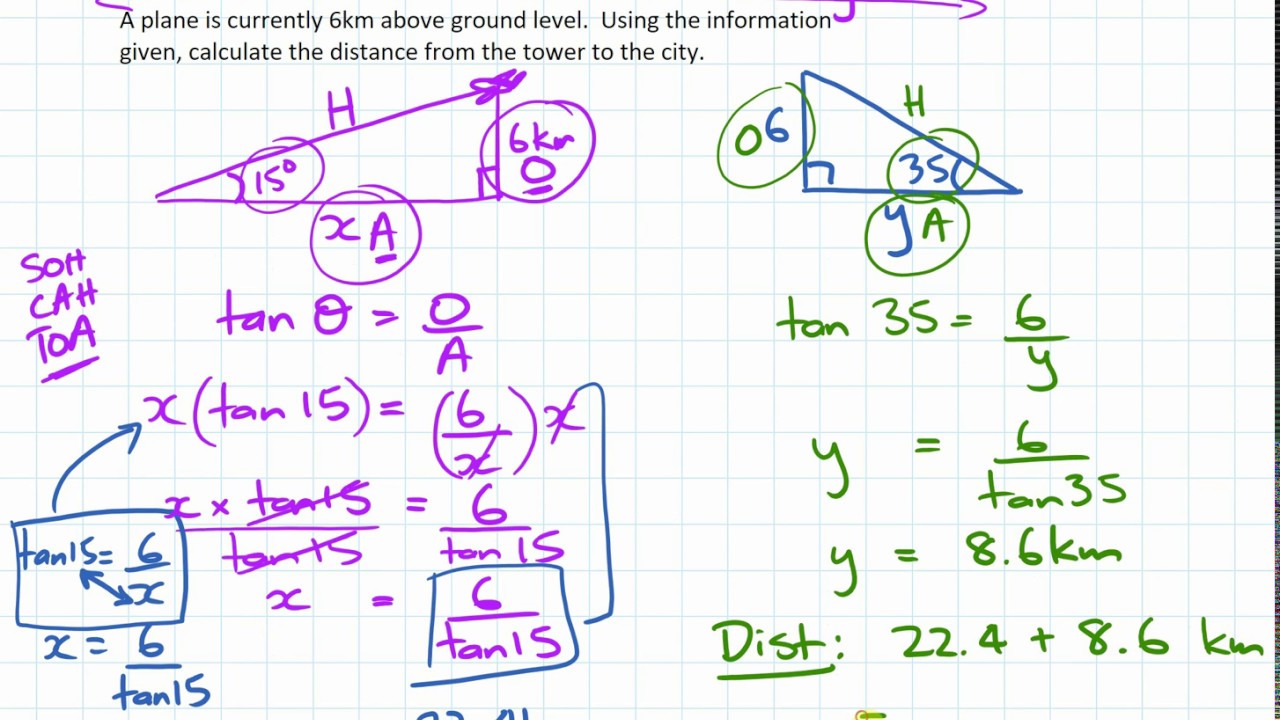 A plane is currently 6km above ground level. Using the information
given, calculate the distance from the tower to the city.
H
15°
6km
O
x A
SOH
CAH
TOA
tan θ = O
A
x(tan 15) = (6
x) x
x × tan15 = 6
tan15 tan 15
x = 6
tan15
tan15 = 6
x
x = 6
tan15
H
O 6
35
y A
tan 35 = 6
y
y = 6
tan35
y = 8.6km
Dist: 22.4 + 8.6 km